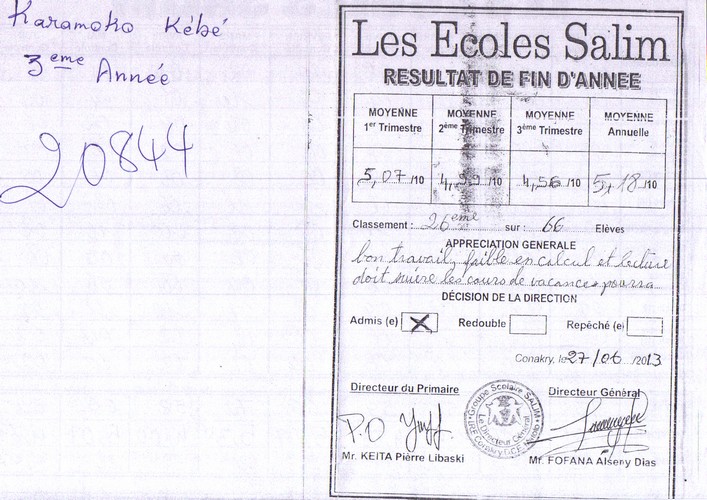 Karamoko Kébé
3ème Année
20844
Les Ecoles Salim
RESULTAT DE FIN D'ANNEE
MOYENNE 1er Trimestre
MOYENNE 2ème Trimestre
MOYENNE 3ème Trimestre
MOYENNE Annuelle
5,07 /10
4,99 /10
4,56 /10
5,18 /10
Classement : 26ème sur : 66 Elèves
APPRECIATION GENERALE
bon travail, faible en calcul et lecture
doit suivre les cours de vacances
DÉCISION DE LA DIRECTION
Admis (e) X Redouble Repêché (e)
Conakry, le 27/06 /2013
Directeur du Primaire
Directeur Général
P.O
Groupe Scolaire SALIM
Le Directeur Général
Mr. KEITA Pierre Libaski
Mr. FOFANA Alseny Dias